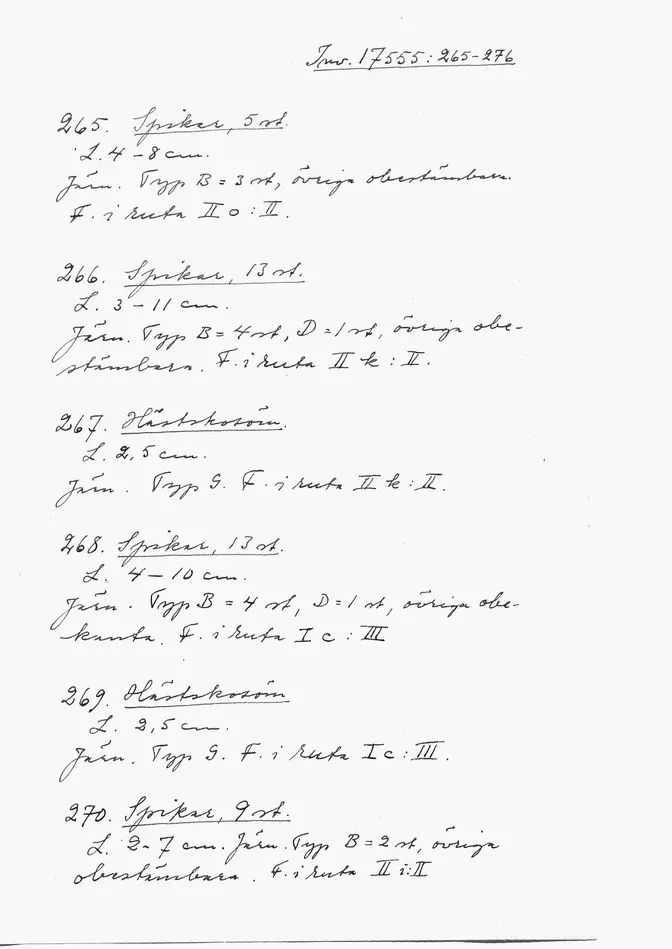 Inv. 17555:265-276
265. Spikar, 5 st.
L. 4-8 cm.
Järn. Typ B = 3 st, övriga obestämbara.
F. i ruta II o : II.
266. Spikar, 13 st.
L. 3-11 cm.
Järn. Typ B = 4 st, D = 1 st, övriga obe-
stämbara. F. i ruta II k : II.
267. Hästskosöm.
L. 2,5 cm.
Järn. Typ G. F. i ruta II k : II.
268. Spikar, 13 st.
L. 4-10 cm.
Järn. Typ B = 4 st, D = 1 st, övriga obe-
kanta. F. i ruta I c : III
269. Hästskosöm
L. 2,5 cm.
Järn. Typ G. F. i ruta I c : III.
270. Spikar, 9 st.
L. 2-7 cm. Järn. Typ B = 2 st, övriga
obestämbara. F. i ruta II i : II